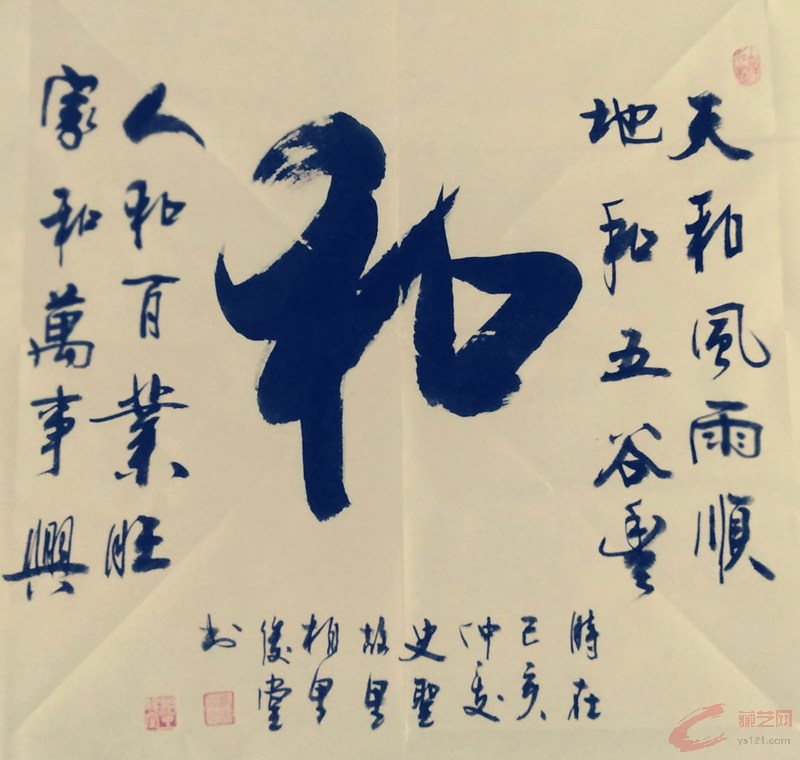 天和風雨順
地和五谷豐
和
人和百業旺
家和萬事興
時在
己亥
仲夏
史聖
故里
相里
俊堂
书
藏艺网
ys121.com